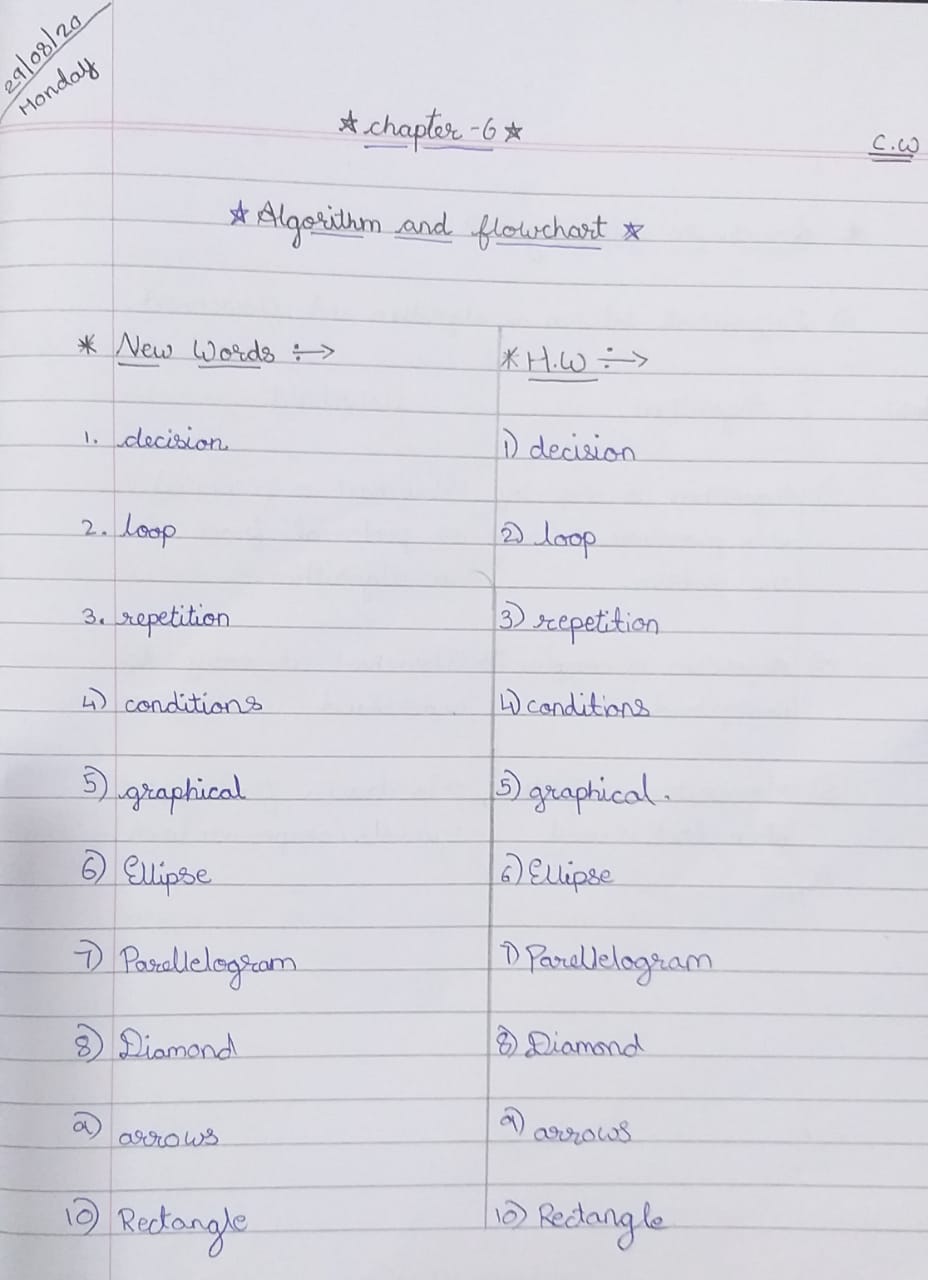 29/08/20
Monday
★ chapter-6 ★
C.W
★ Algorithm and flowchart ★
* New Words ÷→
* H.W ÷→
1. decision
1) decision
2. loop
2) loop
3. repetition
3) repetition
4) conditions
4) conditions
5) graphical
5) graphical.
6) Ellipse
6) Ellipse
7) Parallelogram
7) Parellelogram
8) Diamond
8) Diamond
9) arrows
9) arrows
10) Rectangle
10) Rectangle